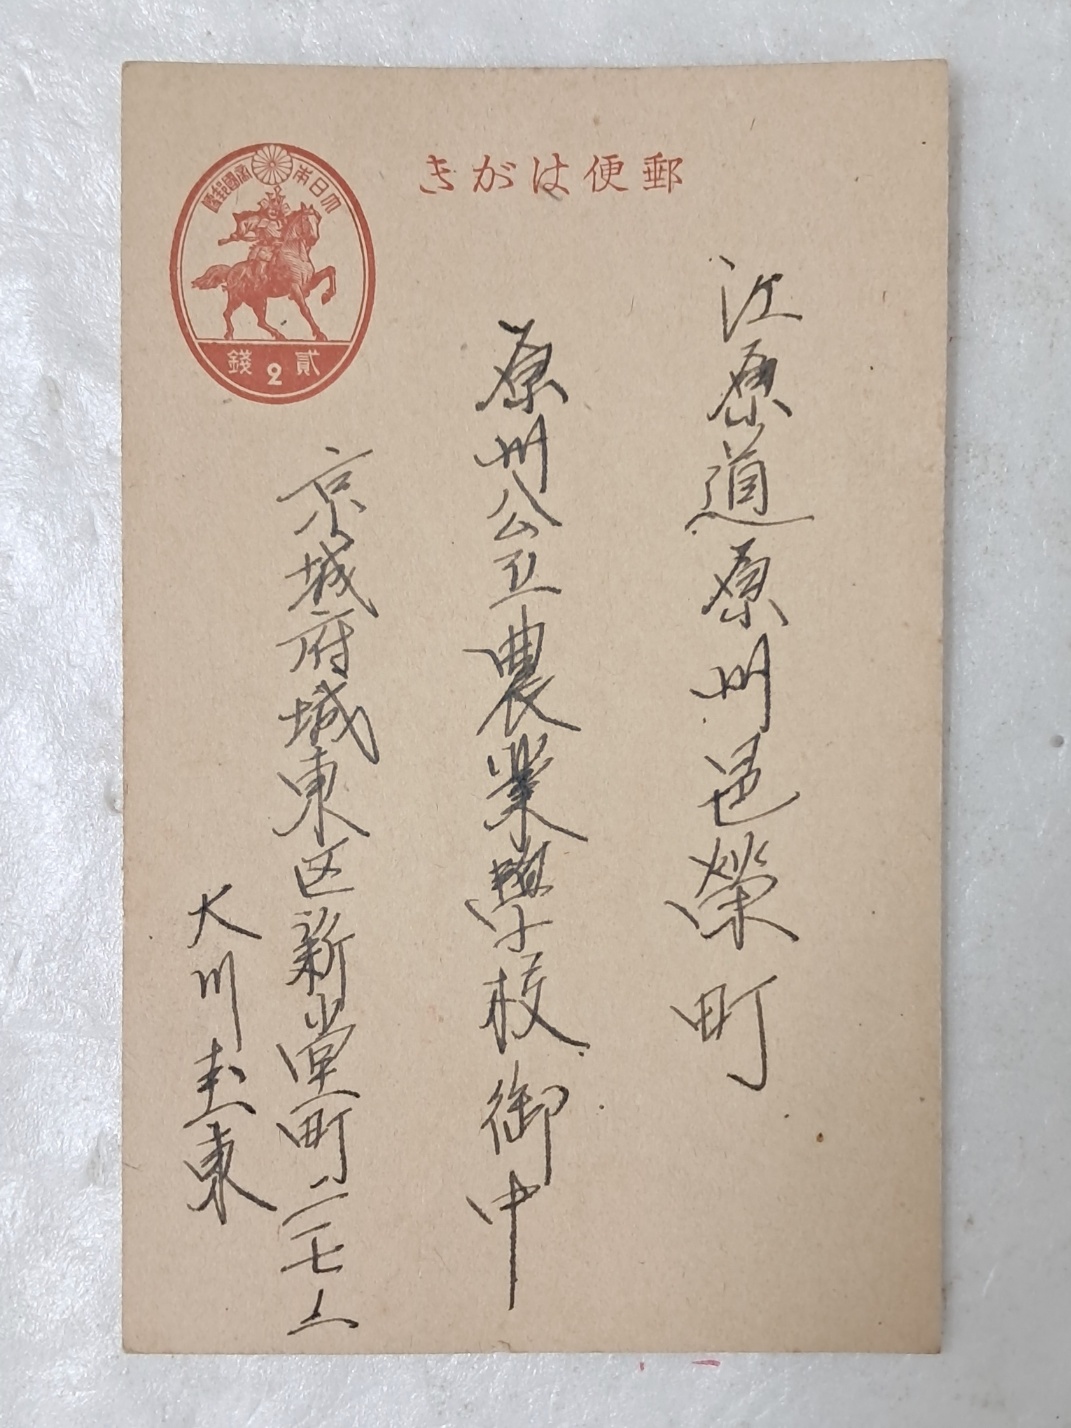 郵便はがき
大日本帝國郵便
貳2錢
江原道原州邑榮町
原州公立農業學校御中
京城府城東区新堂町二一七
大川圭東